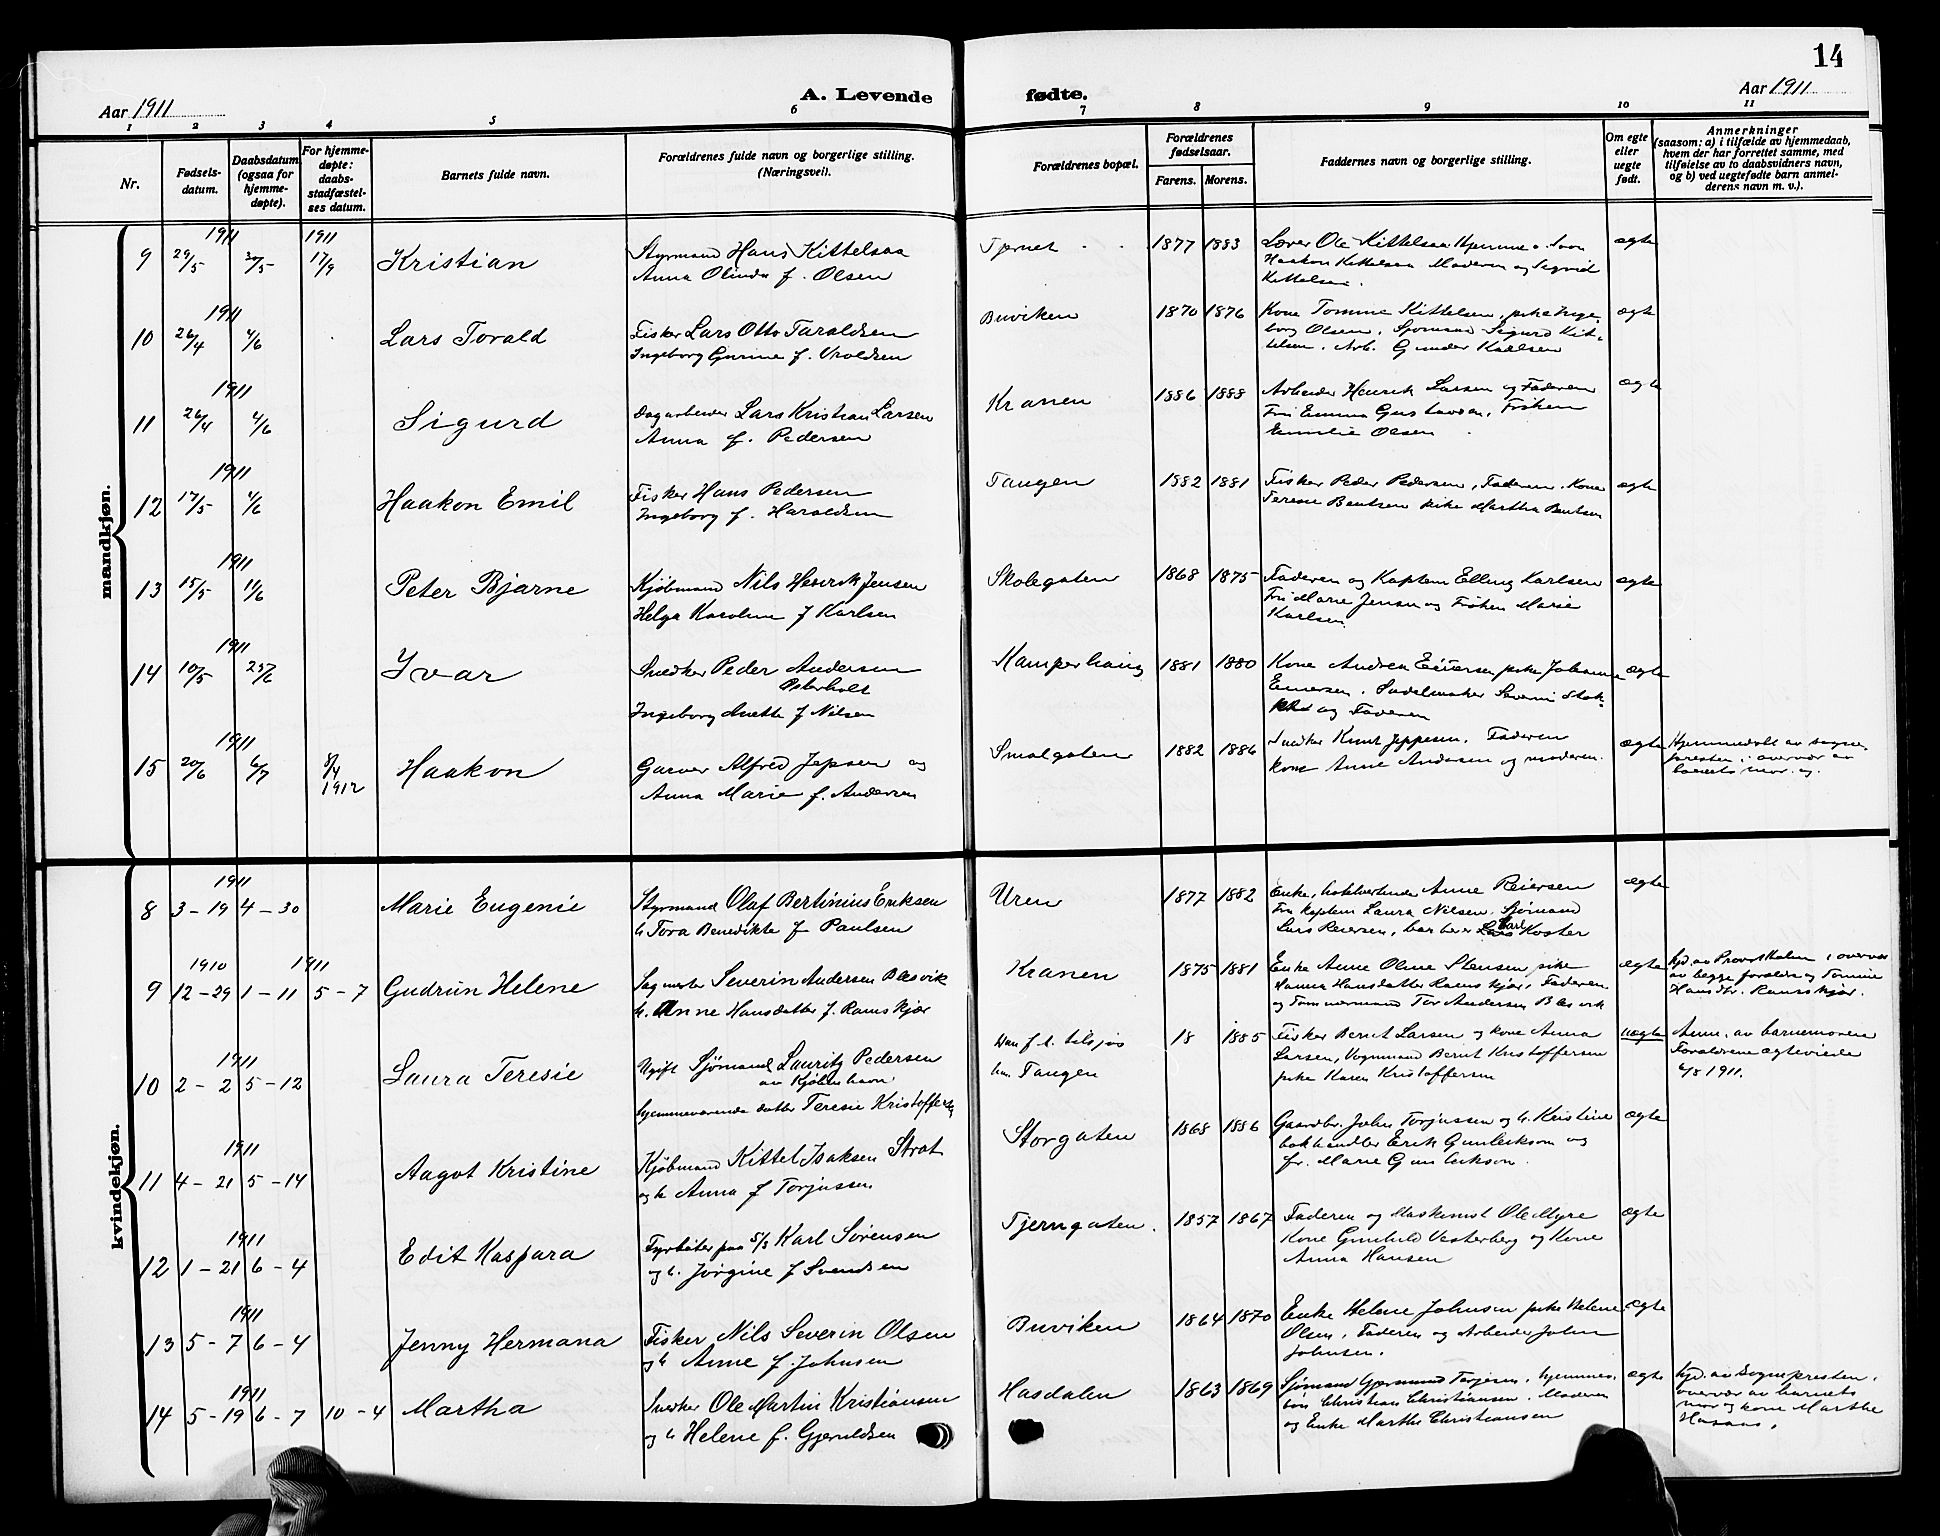 14
Aar 1911
A. Levende
fødte.
Aar 1911
1 2 3 4 5 6 7 8 9 10 11
Nr.
Fødsels-
datum.
Daabsdatum
(ogsaa for
hjemme-
døpte).
For hjemme-
døpte:
daabs-
stadfæstel-
ses datum.
Barnets fulde navn.
Forældrenes fulde navn og borgerlige stilling.
(Næringsvei).
Forældrenes bopæl.
Forældrenes
fødselsaar.
Farens. Morens.
Faddernes navn og borgerlige stilling.
Om egte
eller
uegte
født.
Anmerkninger
(saasom: a) i tilfælde av hjemmedaab,
hvem der har forrettet samme, med
tilføielse av to daabsvidners navn,
og b) ved uegtefødte barn anmel-
derens navn m. v.).
mandkjøn.
1911 1911
9 29/5 17/9 Kristian Styrmand Hans Kittelsaa 1877 1883 Ole Kittelsaa ægte
Anna Olinda f. Olsen Haakon Kittelsaa Moderen og Sigrid
1911
10 26/4 4/6 Lars Torald Fisker Lars Otto Taraldsen Buviken 1870 1876 Kone Tomine Kittelsen, pike Inge- ægte
Ingeborg Gurine f. Uvoldsen borg Olsen, Sigurd Kit-
telsen. Arb. Gunder Karlsen
1911
11 26/4 4/6 Sigurd Dagarbeider Lars Kristian Larsen Kranen 1886 1888 Arbeider Henrik Larsen og Faderen ægte
Anna f. Pedersen Fru Emma Gustavsen, Frøken
Emilie Olsen
1911
12 17/5 4/6 Haakon Emil Fisker Hans Pedersen Tangen 1882 1881 Fisker Peder Pedersen, Faderen. Kone ægte
Ingeborg f. Haraldsen Terese Bentsen pike Martha Bentsen
1911
13 15/5 11/6 Peter Bjarne Kjøbmand Nils Henrik Jensen Skolegaten 1868 1875 Faderen og Kaptein Elling Karlsen ægte
Helga Karoline f Karlsen Fru Marie Jensen og Frøken Marie
Karlsen
1911
14 10/5 25/6 Yvar Snedker Peder Andersen Kamperhaug 1881 1880 Kone Andrea Einersen pike Johanne ægte
Østerholt Einersen. Sadelmaker Severin
Ingeborg Anette f Nilsen og Faderen
1911
15 20/6 6/7 8/4 Haakon Garver Alfred Jepsen og Smalgaten 1882 1886 Snedker Knut Jeppesen. Faderen ægte Hjemmedøbt av sogne-
1912 Anna Marie f. Andersen Kone Anne Andersen og moderen. presten i overvær av
barnets mor og
kvindekjøn.
1911
8 3 - 19 4 - 30 Marie Eugenie Styrmand Olaf Bertinius Eriksen Uren 1877 1882 Enke, Anne Reiersen ægte
h Tora Benedikte f Paulsen Fru kaptein Laura Nilsen. Sjømand
Lars Reiersen, barber Carl Koster
1910 1911
9 12 - 29 1 - 11 5 - 7 Gudrun Helene Sagmester Severin Andersen Blesvik Kranen 1875 1881 Enke Anne Oline Stensen pike ægte hjd. av Provst i overvær
h. Anne Hansdatter f. Ramskjær Hanna Hansdatter Ramskjær, Faderen av begge forældre og Tomine
og Tømmermand Tor Andersen Blesvik Hansdtr. Ramskjær.
1911
10 2 - 2 5 - 12 Laura Teresie Ugift Sjømand Lauritz Pedersen Han f. t. tilsjøs 18 1885 Fisker Bernt Larsen og kone Anna uægte Anm. av barnemoren
av Kjøbenhavn hun Tangen Larsen, Vognmand Bernt Kristoffersen Forældrene ægteviede
hjemmeværende datter Teresie Kristoffersen pike Karen Kristoffersen 6/8 1911.
1911
11 4 - 21 5 - 14 Aagot Kristine Kjøbmand Kittel Isaksen Strat Storgaten 1868 1886 Gaardbr. John Torjussen og h. Kristine ægte
og h Anna f Torjussen bokhandler Erik Gunleiksen og
fr. Marie Gunleiksen.
1911
12 1 - 21 6 - 4 Edit Kaspara Fyrbøter paa S/S Karl Sørensen Tjerngaten. 1857 1867 Faderen og Maskinist Ole Myre ægte
og h. Jørgine f Svendsen Kone Gunhild Vesterberg og Kone
Anna Hansen
1911
13 5 - 7 6 - 4 Jenny Hermana Fisker Nils Severin Olsen Buviken 1864 1870 Enke Helene Johnsen pike Helene ægte
og h Anne f. Johnsen Olsen, Faderen og Arbeider John
Johnsen.
1911
14 5 - 19 6 - 7 10 - 4 Martha Snedker Ole Martin Kristiansen Hasdalen 1863 1869 Sjømand Gjermund Terjesen, hjemmes- ægte hjd. av Sognepresten i
og h Helene f. Gjeruldsen søn Christian Christiansen. Moderen overvær av barnets
og Enke Marthe Christiansen mor og kone Marthe